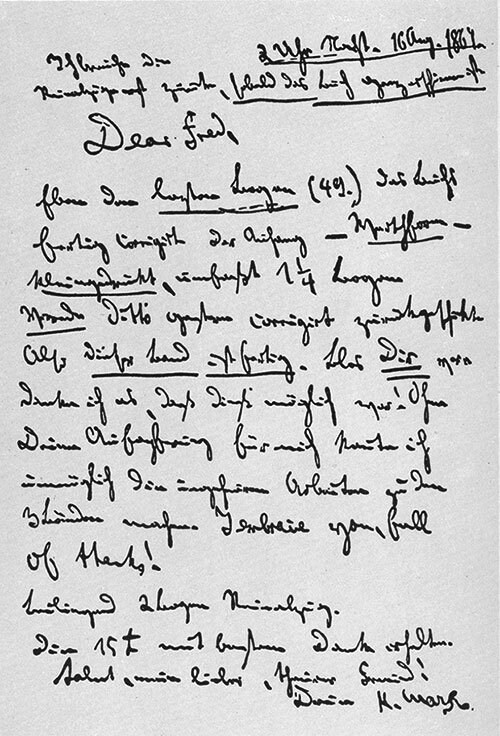 2 Uhr Nacht. 16 Aug. 1867.
Ich brauche die
Reinabzüge erst zurück, sobald das Buch ganz erschienen ist
Dear Fred,
Eben den letzten Bogen (49.) des Buchs
fertig corrigirt. Der Anhang – Werthform –
kleingedruckt, umfaßt 1 1/4 Bogen.
Vorrede ditto gestern corrigirt zurückgeschickt.
Also dieser Band ist fertig. Blos Dir ver-
danke ich es, daß dieß möglich war! Ohne
Deine Aufopferung für mich konnte ich
unmöglich die ungeheuren Arbeiten zu den
3 Bänden machen. I embrace you, full
of thanks!
Beiliegend 2 Bogen Reinabzug.
Die 15 £ mit bestem Dank erhalten.
Salut, mein lieber, theurer Freund!
Dein K. Marx.